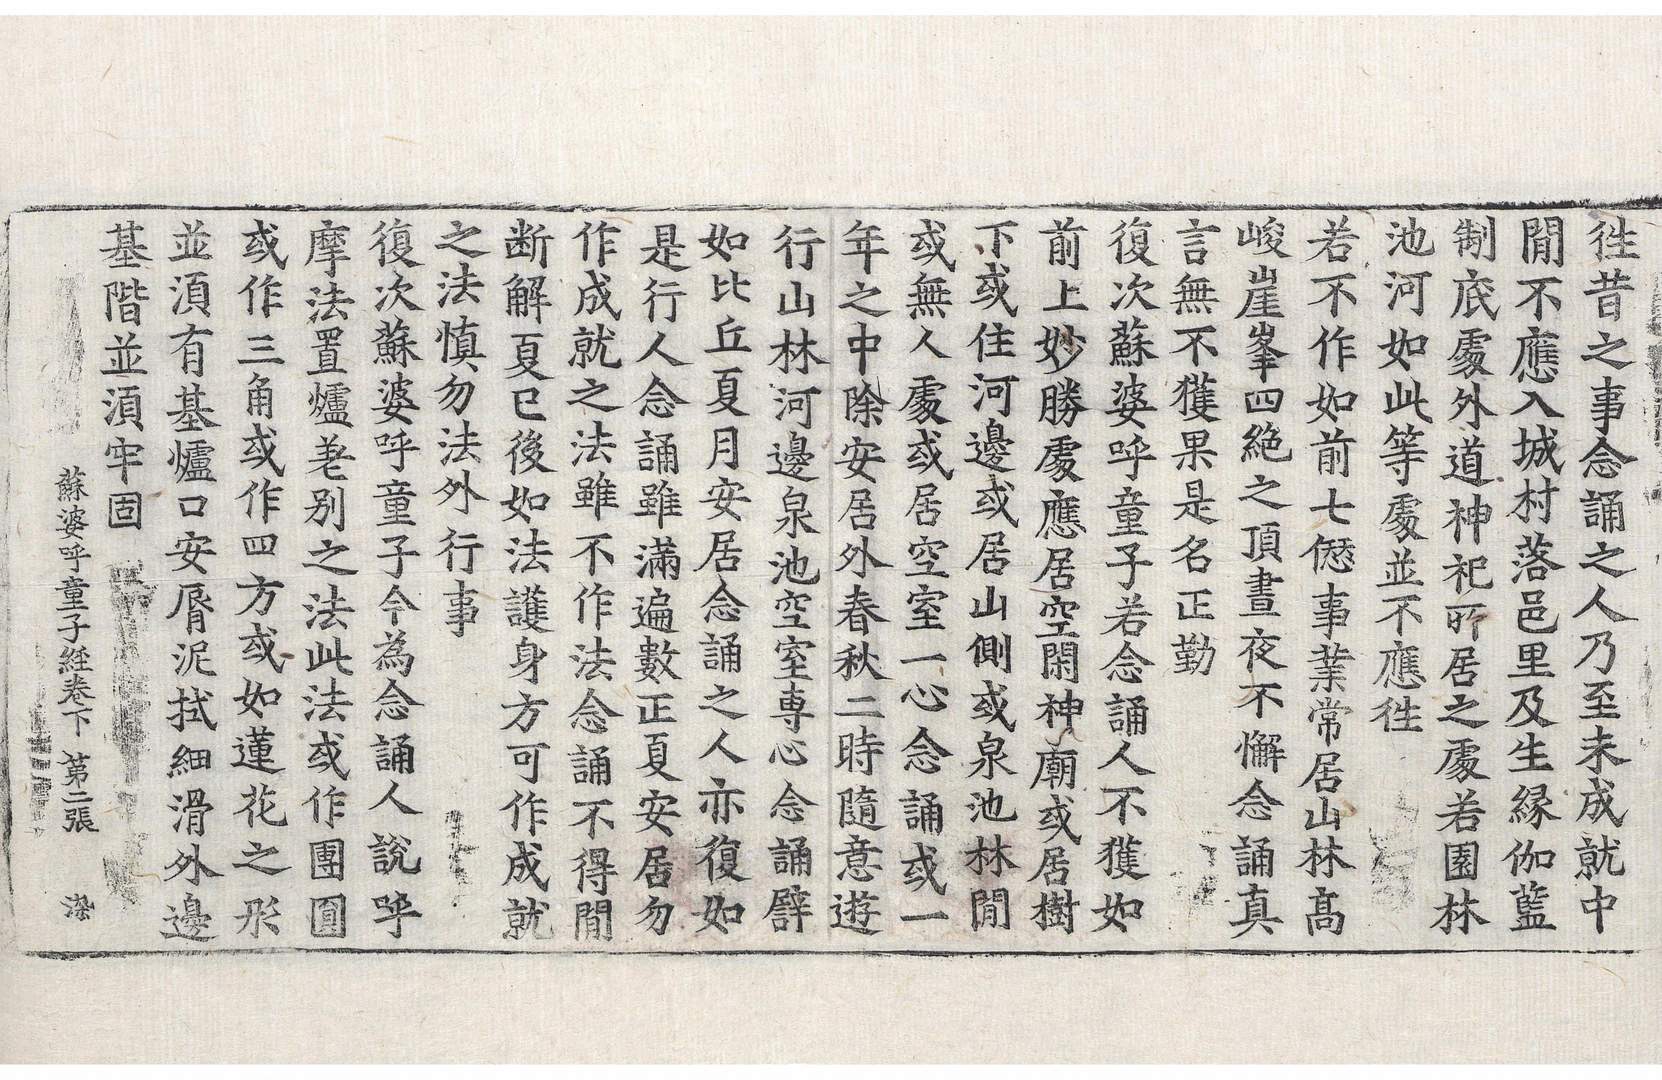 徃昔之事念誦之人乃至未成就中
閒不應入城村落邑里及生縁伽藍
制底䖏外道神祀所居之䖏若園林
池河如此等䖏並不應徃
若不作如前七𠎝事業常居山林髙
峻崖峯四絶之頂晝夜不懈念誦真
言無不獲果是名正勤
復次蘇婆呼童子若念誦人不獲如
前上妙勝䖏應居空閑神廟或居樹
下或住河邊或居山側或泉池林閒
或無人䖏或居空室一心念誦或一
年之中除安居外春秋二時隨意遊
行山林河邊泉池空室専心念誦譬
如比丘夏月安居念誦之人亦復如
是行人念誦雖滿遍數正夏安居勿
作成就之法雖不作法念誦不得閒
断解夏已後如法護身方可作成就
之法慎勿法外行事
復次蘇婆呼童子今為念誦人說呼
摩法置爐差别之法此法或作團圓
或作三角或作四方或如蓮花之形
並湏有基爐口安脣泥拭細滑外邊
基階並湏牢固
蘇婆呼童子經卷下 第二張